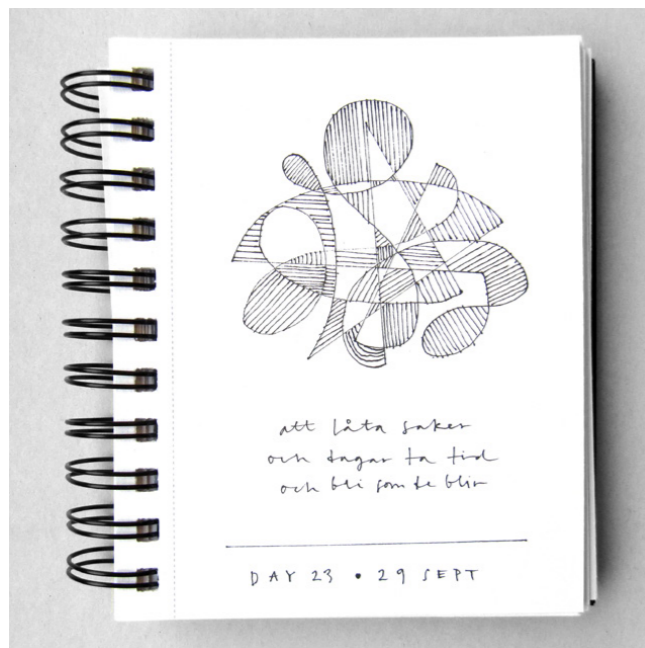 att låta saker
och dagar ta tid
och bli som de blir
DAY 23 • 29 SEPT